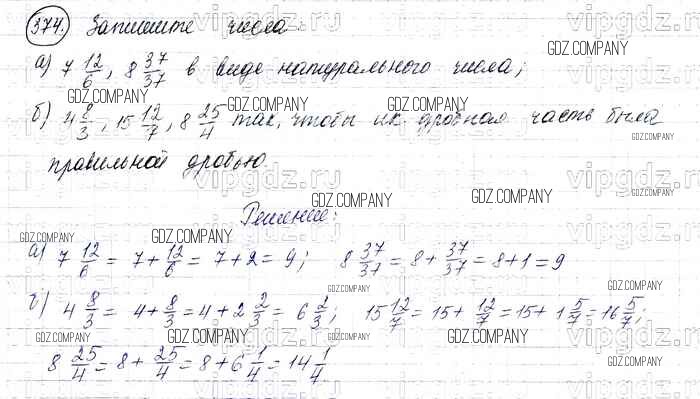 374. Запишите числа:
а) 7 12/6, 8 37/37 в виде натурального числа;
б) 4 8/3, 15 12/7, 8 25/4 так, чтобы их дробная часть была
правильной дробью.
Решение:
а) 7 12/6 = 7 + 12/6 = 7 + 2 = 9; 8 37/37 = 8 + 37/37 = 8 + 1 = 9
б) 4 8/3 = 4 + 8/3 = 4 + 2 2/3 = 6 2/3; 15 12/7 = 15 + 12/7 = 15 + 1 5/7 = 16 5/7;
8 25/4 = 8 + 25/4 = 8 + 6 1/4 = 14 1/4
GDZ.COMPANY
vipgdz.ru